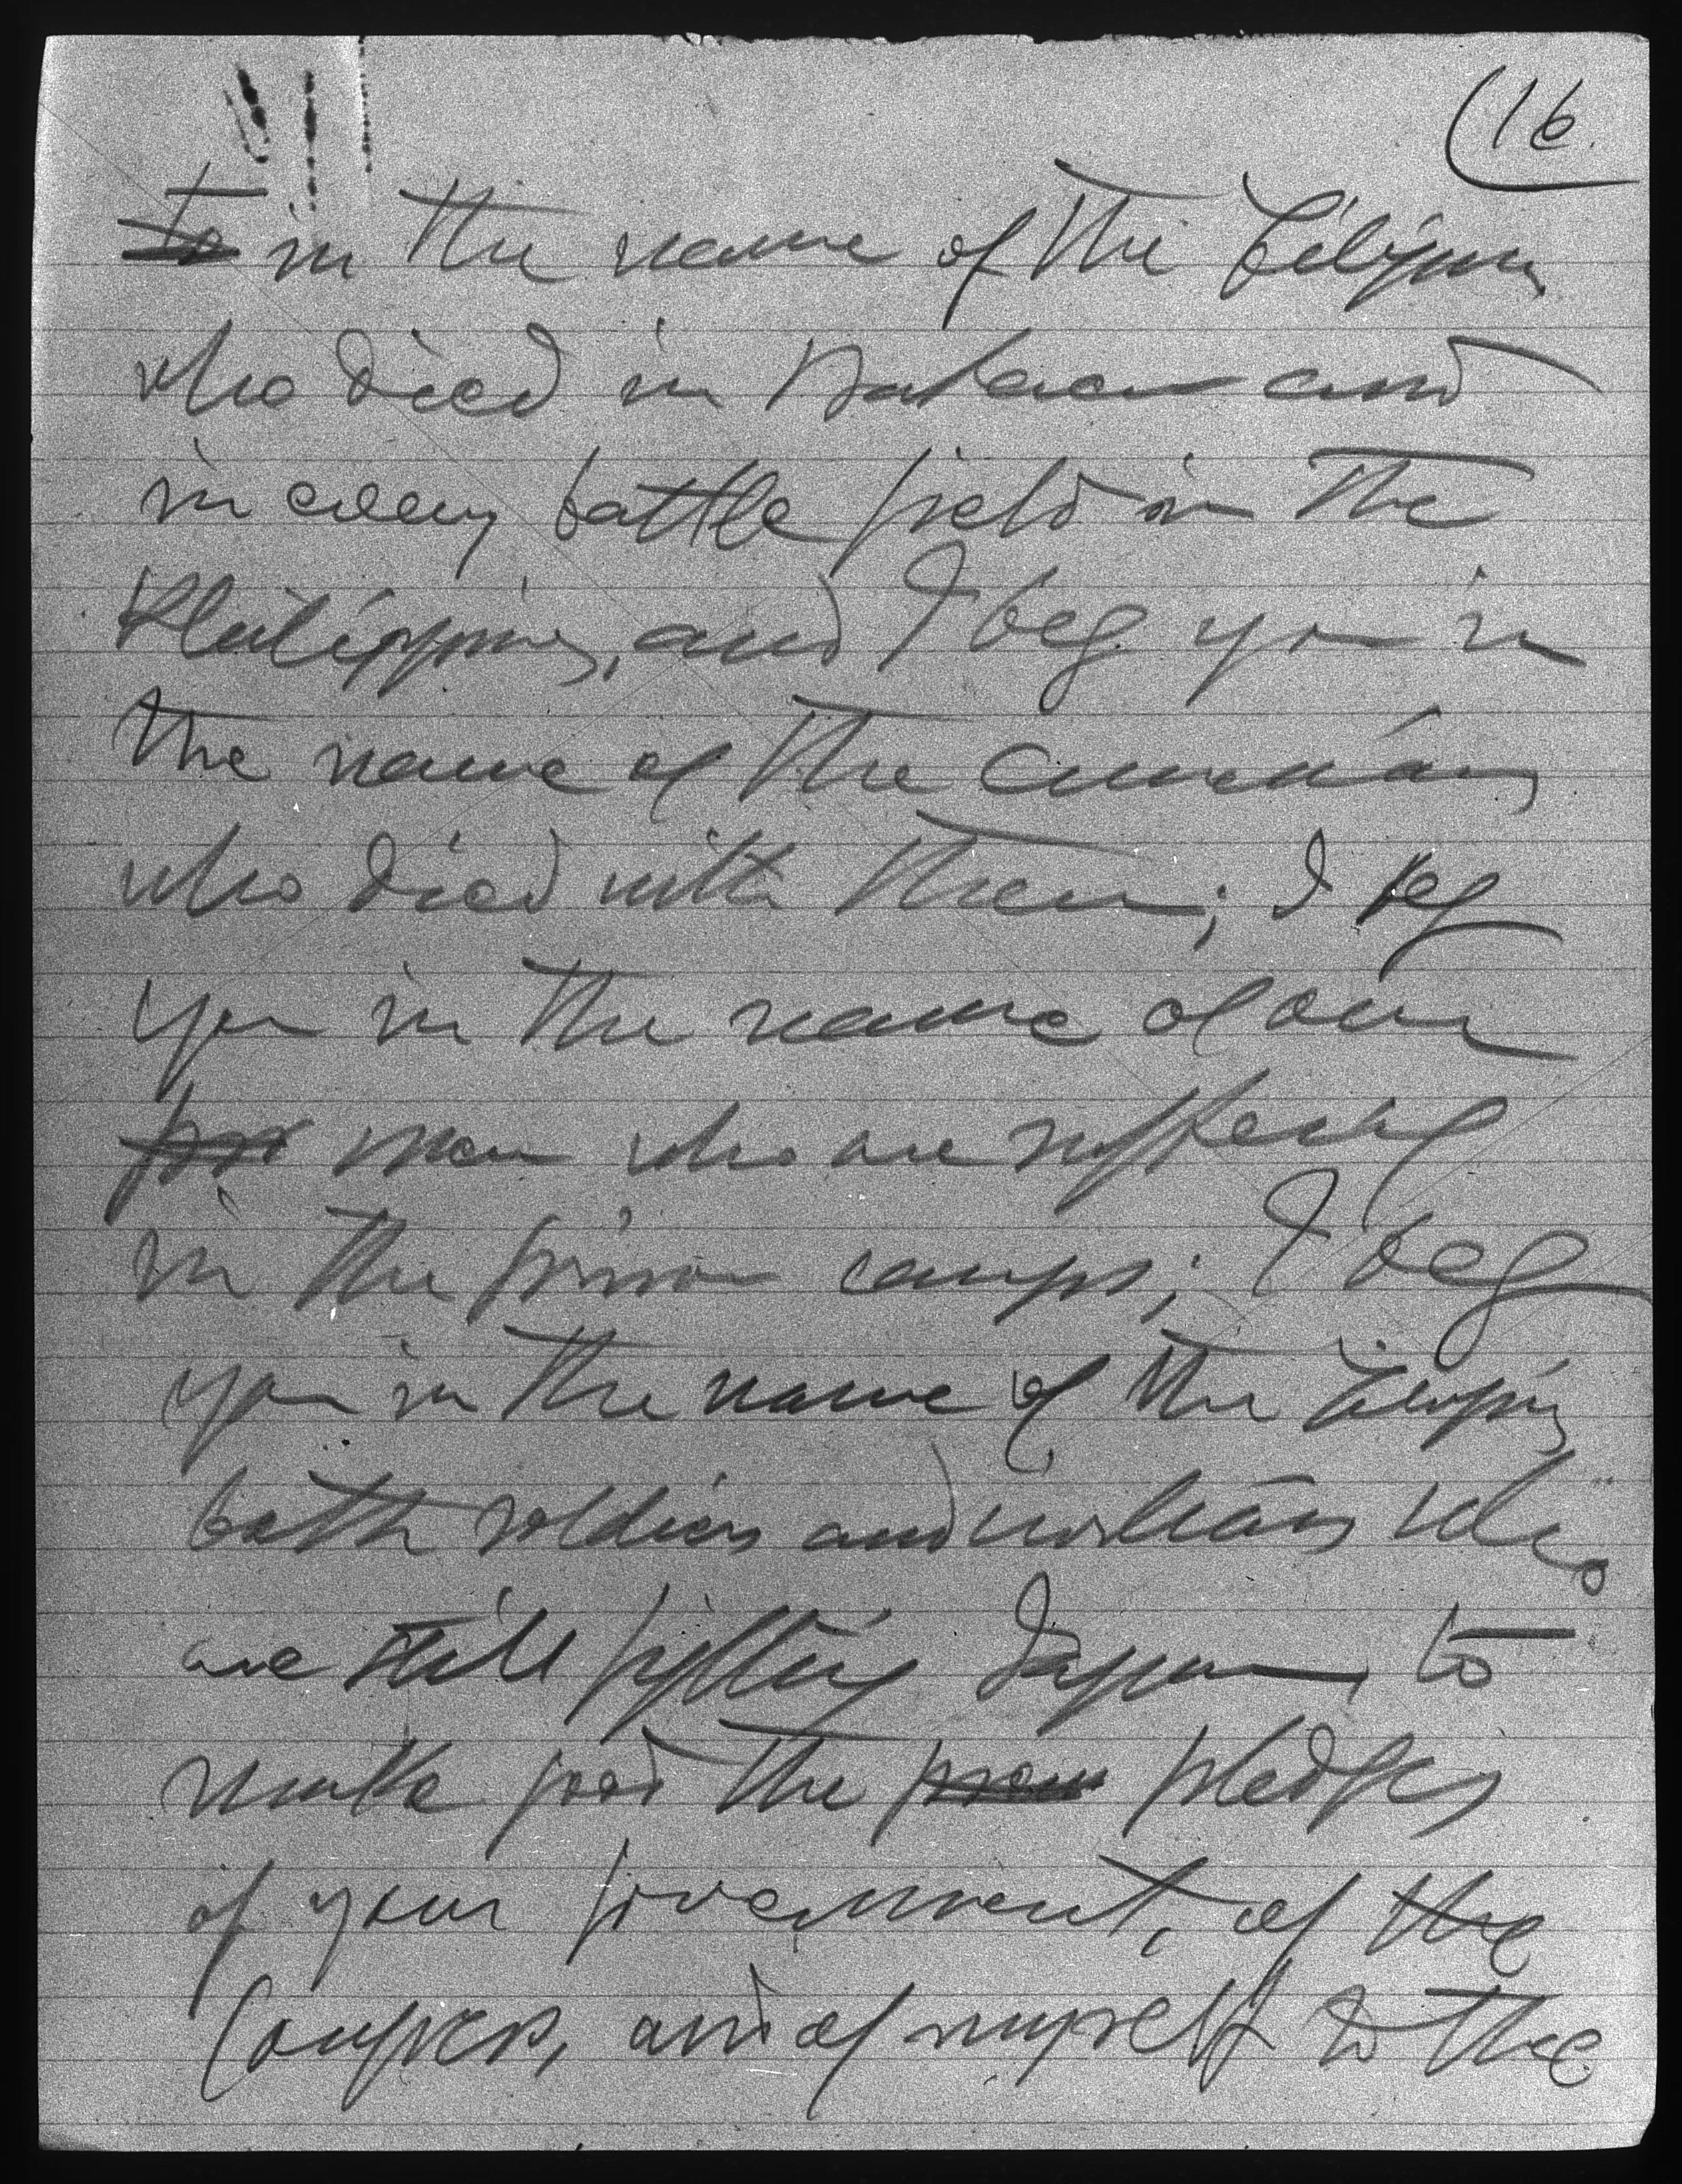 (16.
to in the name of the Filipinos
who died in Bataan and
in every battle field in the
Philippines, and I beg you in
the name of the Americans
who died with them; I beg
you in the name of our
poor men who are suffering
in the prison camps; I beg
you in the name of the Filipinos
both soldiers and civilians who
are still fighting Japan, to
make good the pledges
of your government, of the
Congress, and of myself to the